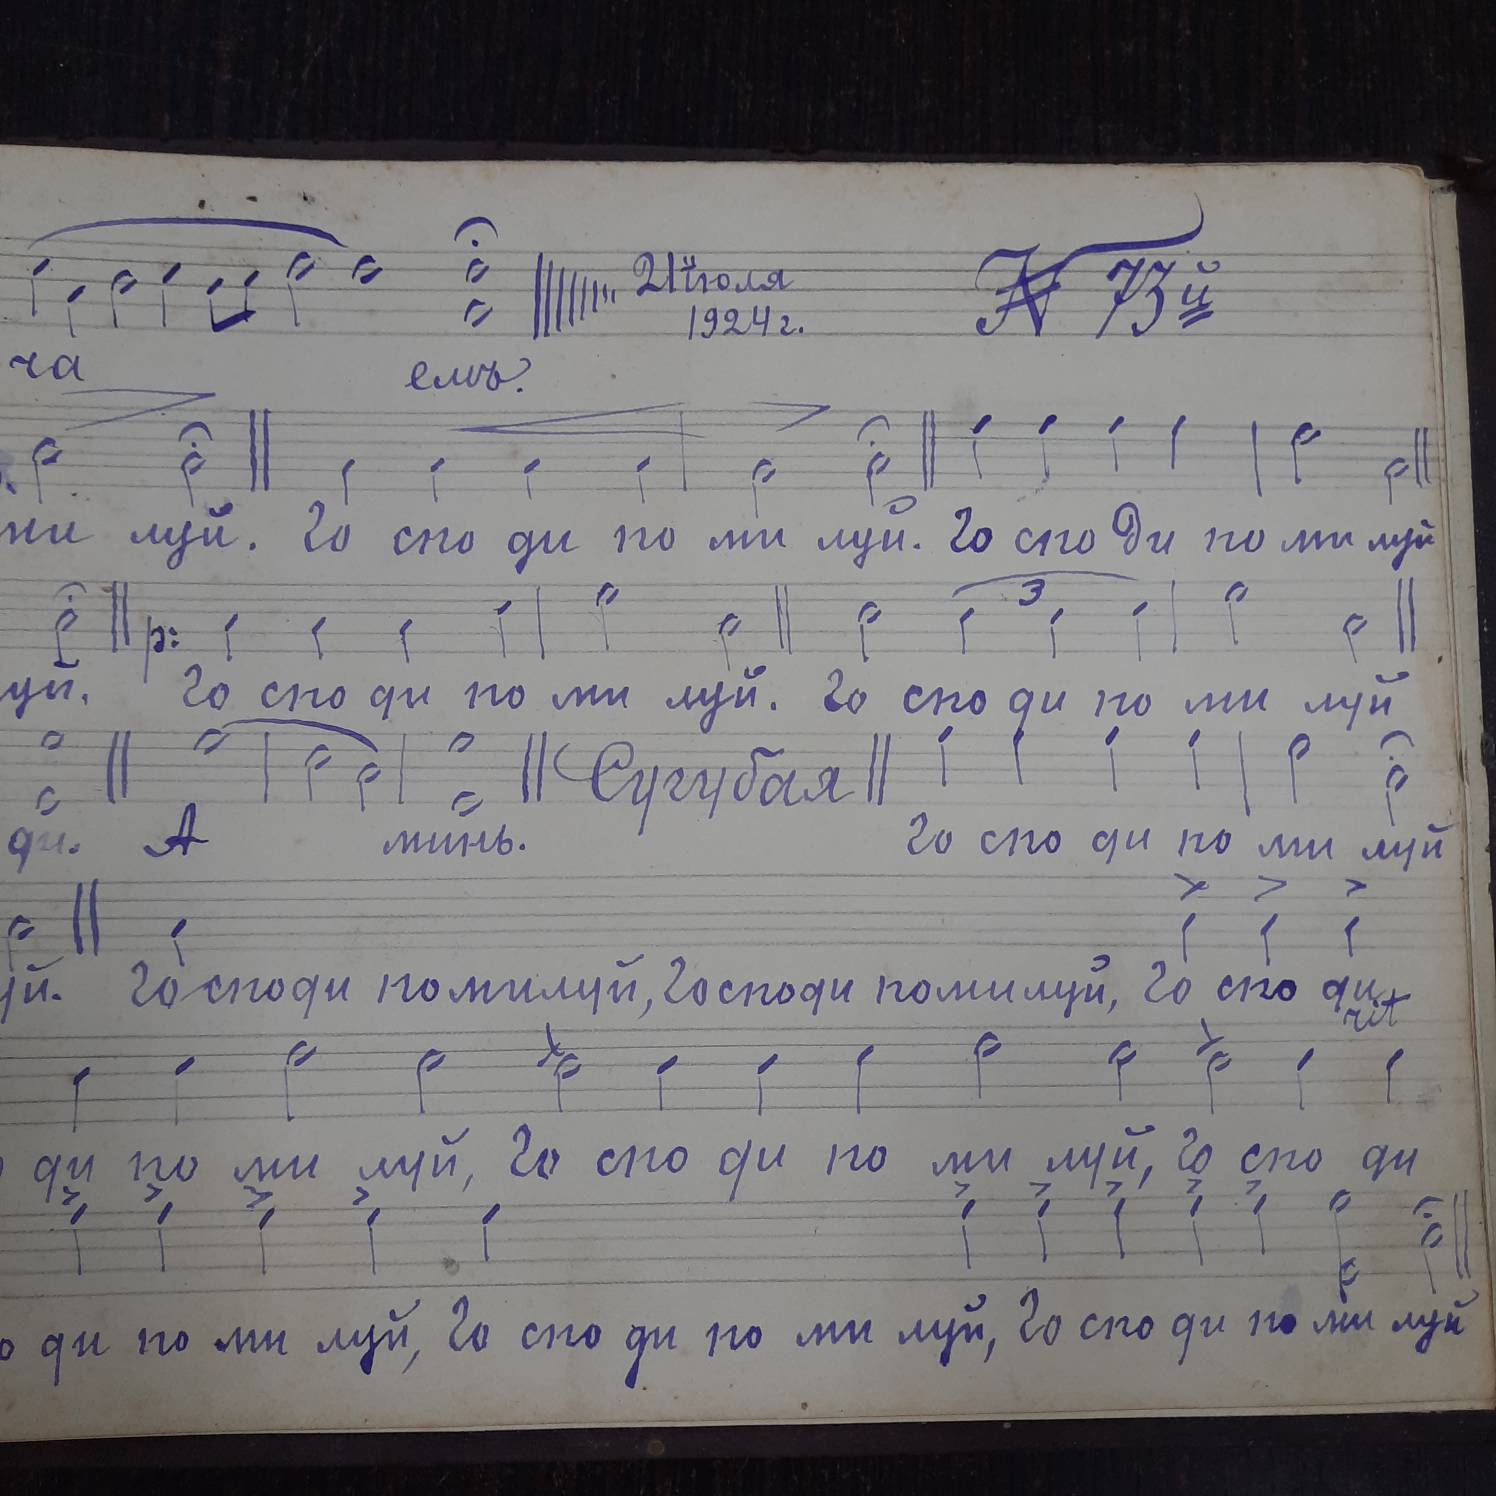 21 июля № 73й
1924 г.
ча емъ.
ми луй. Го спо ди по ми луй. Го спо Ди по ми луй
3
p:
луй. Го спо ди по ми луй. Го спо ди по ми луй
Сугубая
ди. А минь. Го спо ди по ми луй
уй. Господи помилуй, Господи помилуй, Го спо ди
rit
ди по ми луй, Го спо ди по ми луй, Го спо ди
о ди по ми луй, Го спо ди по ми луй, Го спо ди по ми луй